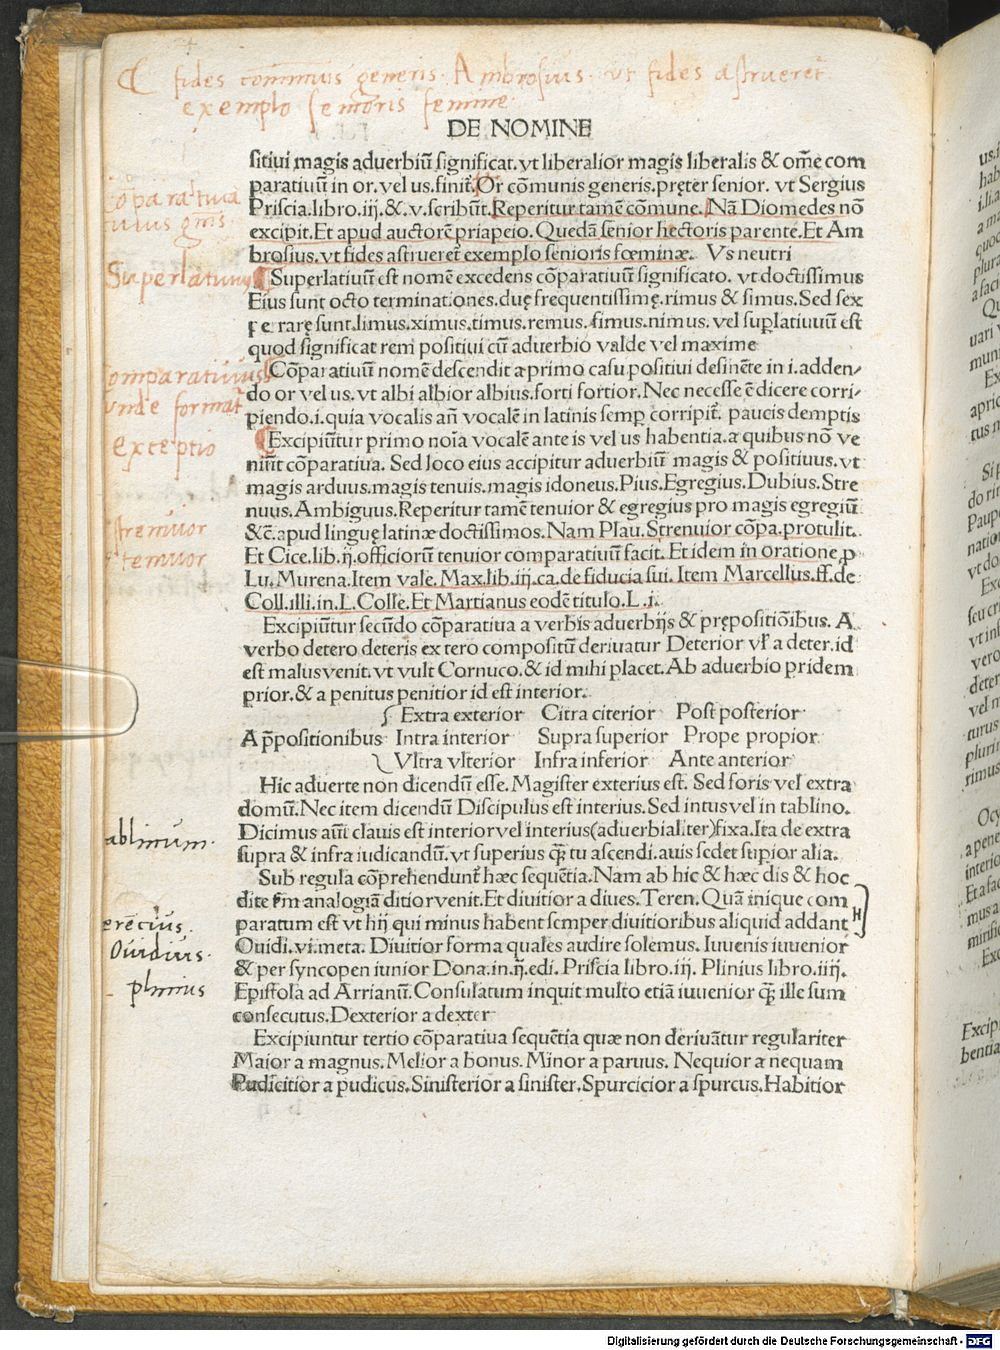 fides communis generis. Ambrosius. ut fides astrueret
exemplo senioris femine
DE NOMINE
sitiui magis aduerbiū significat. vt liberalior magis liberalis & om̄e com
paratiuū in or. vel us. finit̄. Or cōmunis generis. pręter senior. vt Sergius
Priscia. libro. iij. & .v. scribūt. Reperitur tamē cōmune. Nā Diomedes nō
excipit. Et apud auctorē priapeio. Quedā senior hectoris parente. Et Am
brosius. vt fides astrueret exemplo senioris fœminæ. Vs neutri
Superlatiuus
Superlatiuū est nomē excedens cōparatiuū significato. vt doctissimus
Eius sunt octo terminationes. duę frequentissimę. rimus & simus. Sed sex
rarę sunt. limus. ximus. timus. remus. fimus. nimus. vel suplatiuuū est
quod significat rem positiui cū aduerbio valde vel maxime
omparatiuus
unde format
Cōparatiuū nomē descendit a primo casu positiui desinēte in i. adden-
do or vel us. vt albi albior albius. forti fortior. Nec necesse ē dicere corri-
piendo. i. quia vocalis an̄ vocalē in latinis semp corripit̄. paucis demptis
exceptio
Excipiūtur primo noīa vocalē ante is vel us habentia. a quibus nō ve
niūt cōparatiua. Sed loco eius accipitur aduerbiū magis & positiuus. vt
magis arduus. magis tenuis. magis idoneus. Pius. Egregius. Dubius. Stre
nuus. Ambiguus. Reperitur tamē tenuior & egregius pro magis egregiū
stremuior
&c̄. apud linguę latinæ doctissimos. Nam Plau. Strenuior cōpa. protulit.
temuior
Et Cice. lib. ij. officiorū tenuior comparatiuū facit. Et idem in oratione p
Lu. Murena. Item vale. Max. lib. iij. ca. de fiducia sui. Item Marcellus. ff. de
Coll. illi. in. L. Colle. Et Martianus eodē titulo. L. i.
Excipiūtur secūdo cōparatiua a verbis aduerbijs & prępositiōibus. A
verbo detero deteris ex tero compositū deriuatur Deterior vł a deter. id
est malus venit. vt vult Cornuco. & id mihi placet. Ab aduerbio pridem
prior. & a penitus penitior id est interior.
Extra exterior Citra citerior Post posterior
A p̄positionibus Intra interior Supra superior Prope propior
Vltra vlterior Infra inferior Ante anterior
Hic aduerte non dicendū esse. Magister exterius est. Sed foris vel extra
domū. Nec item dicendū Discipulus est interius. Sed intus vel in tablino.
ablinum.
Dicimus aūt clauis est interior vel interius (aduerbialiter) fixa. Ita de extra
supra & infra iudicandū. vt superius q̄ tu ascendi. auis sedet supior alia.
Sub regula cōprehendunt̄ hæc sequētia. Nam ab hic & hæc dis & hoc
dite s̄m analogiā ditior venit. Et diuitior a diues. Teren. Quā inique com
erēcius.
paratum est vt hij qui minus habent semper diuitioribus aliquid addant
Ouidius.
Ouidi. vi. meta. Diuitior forma quales audire solemus. Iuuenis iuuenior
& per syncopen iunior Dona. in. ij. edi. Priscia libro. iij. Plinius libro. iiij.
plinius
Epistola ad Arrianū. Consulatum inquit multo etiā iuuenior q̄ ille sum
consecutus. Dexterior a dexter
Excipiuntur tertio cōparatiua sequētia quæ non deriuātur regulariter
Maior a magnus. Melior a bonus. Minor a paruus. Nequior a nequam
Pudicitior a pudicus. Sinisterior a sinister. Spurcicior a spurcus. Habitior
Digitalisierung gefördert durch die Deutsche Forschungsgemeinschaft - DFG